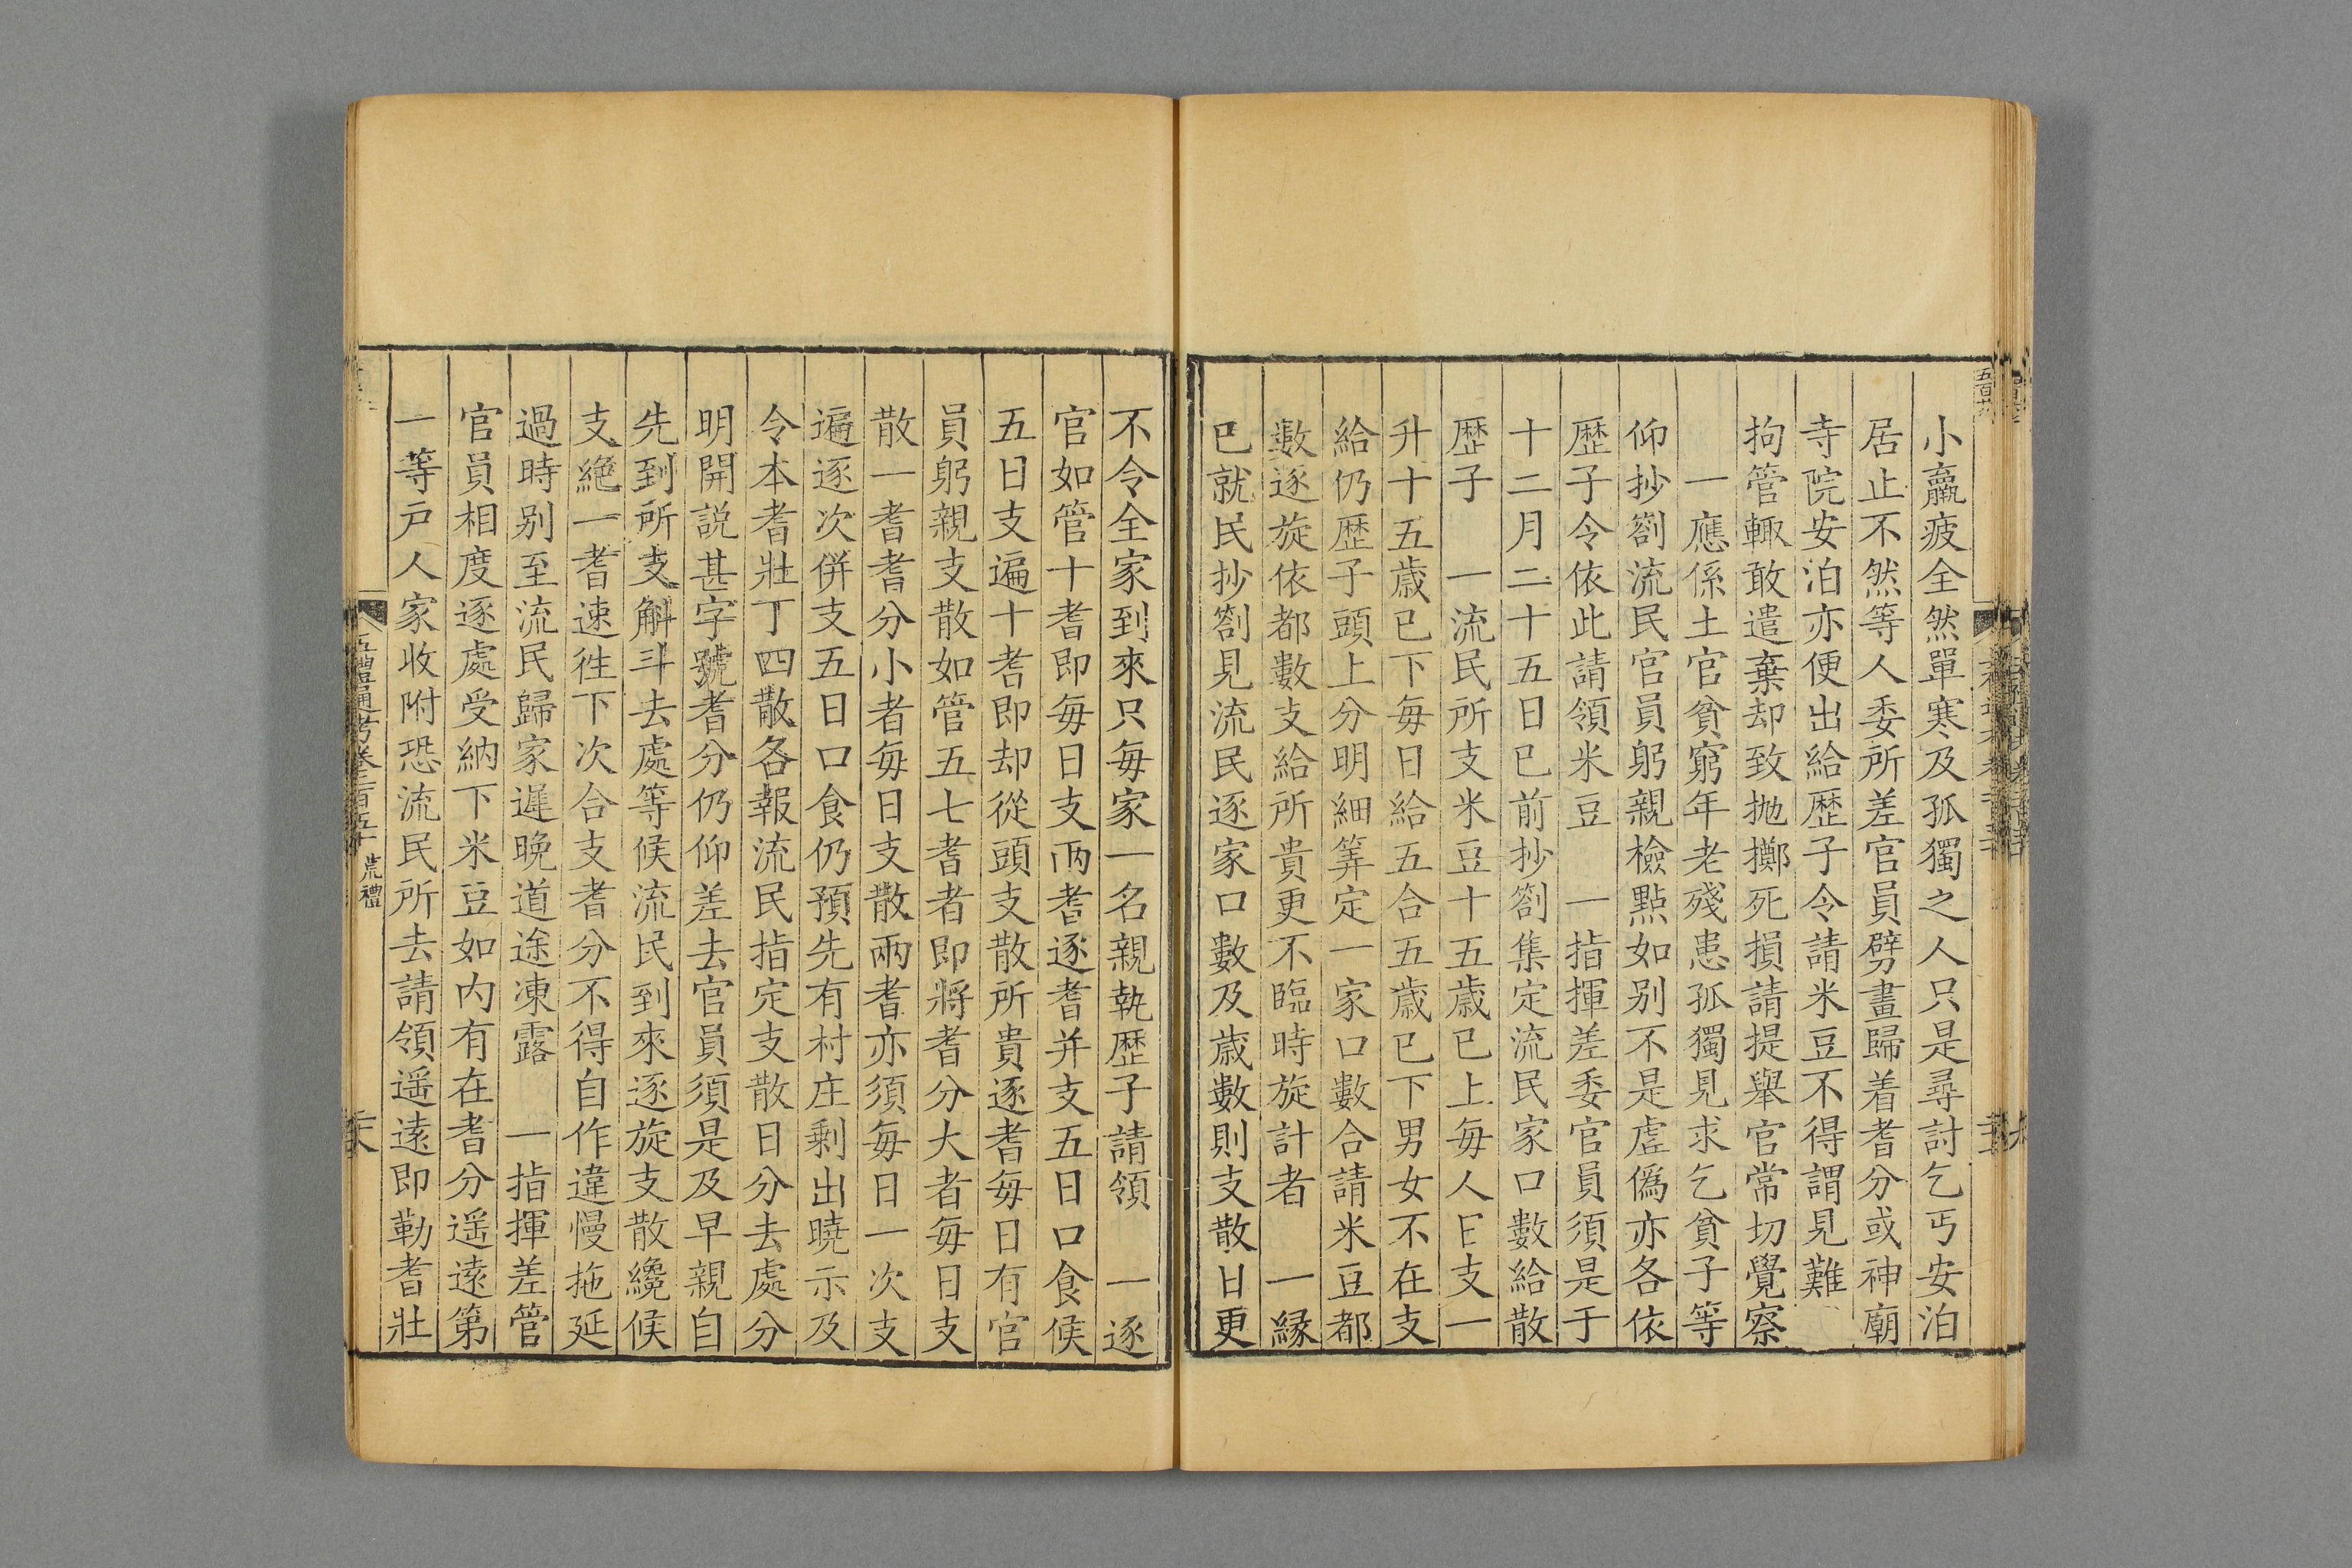 小羸疲全然單寒及孤獨之人只是尋討乞丐安泊
居止不然等人委所差官員劈畫歸着耆分或神廟
寺院安泊亦便出給歷子令請米豆不得謂見難
拘管輙敢遣棄却致抛擲死損請提舉官常切覺察
一應係土官貧窮年老殘患孤獨見求乞貧子等
仰抄劄流民官員躬親檢點如别不是虛僞亦各依
歷子令依此請領米豆　一指揮差委官員須是于
十二月二十五日已前抄劄集定流民家口數給散
歷子　一流民所支米豆十五歲已上每人日支一
升十五歲已下每日給五合五歲已下男女不在支
給仍歷子頭上分明細筭定一家口數合請米豆都
數逐旋依都數支給所貴更不臨時旋計者　一緣
已就民抄劄見流民逐家口數及歲數則支散日更
不令全家到來只每家一名親執歷子請領　一逐
官如管十耆即每日支兩耆逐耆并支五日口食候
五日支遍十耆即却從頭支散所貴逐耆每日有官
員躬親支散如管五七耆者即將耆分大者每日支
散一耆耆分小者每日支散兩耆亦須每日一次支
遍逐次併支五日口食仍預先有村庄剩出曉示及
令本耆壯丁四散各報流民指定支散日分去處分
明開説甚字號耆分仍仰差去官員須是及早親自
先到所支斛斗去處等候流民到來逐旋支散纔候
支絕一耆速徃下次合支耆分不得自作違慢拖延
過時别至流民歸家遲晚道途凍露　一指揮差管
官員相度逐處受納下米豆如内有在耆分遥遠第
一等戸人家收附恐流民所去請領遥遠即勒耆壯
五禮通考卷二百五十　荒禮